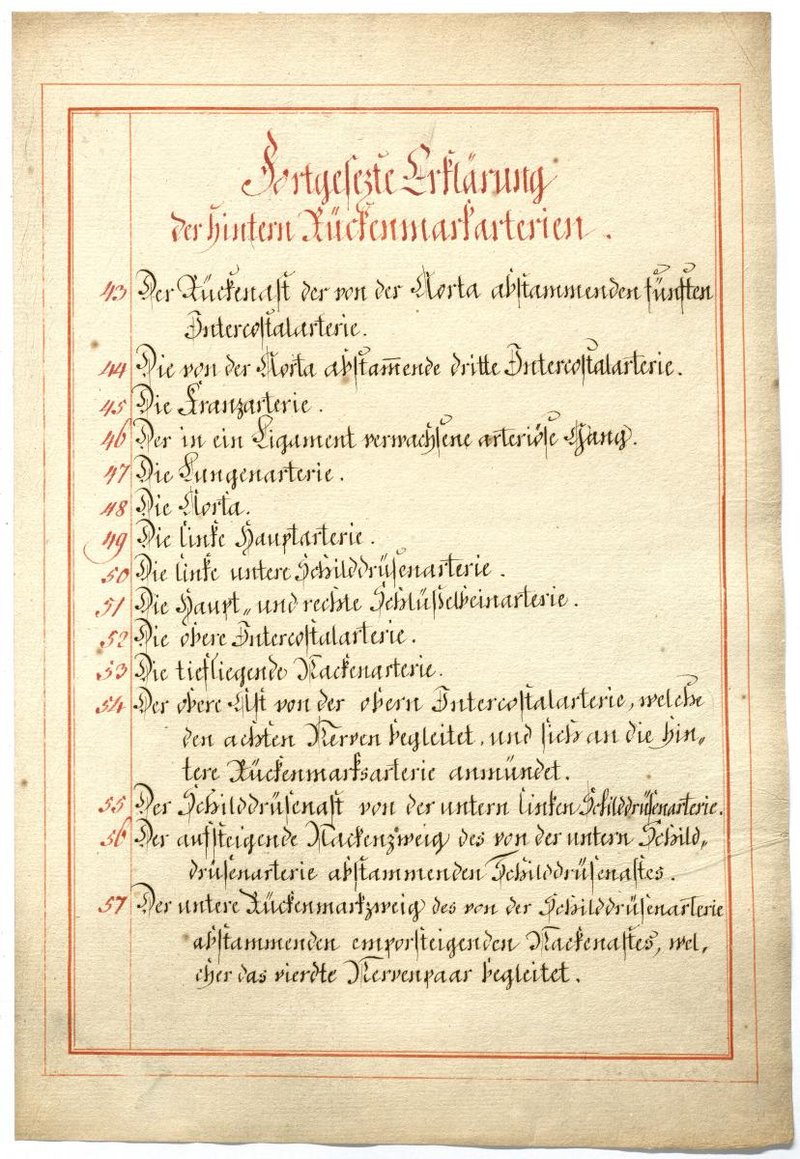 Fortgesezte Erklärung
der hintern Rückenmarkarterien.
43 Der Rückenast der von der Aorta abstammenden fünften
Intercostalarterie.
44 Die von der Aorta abstam̅ende dritte Intercostalarterie.
45 Die Kranzarterie.
46 Der in ein Ligament verwachsene arteriöse Gang.
47 Die Lungenarterie.
48 Die Aorta.
49 Die linke Hauptarterie.
50 Die linke untere Schilddrüsenarterie.
51 Die Haupt„ und rechte Schlüßelbeinarterie.
52 Die obere Intercostalarterie.
53 Die tiefliegende Nackenarterie.
54 Der obere Ast von der obern Intercostalarterie, welche
den achten Nerven begleitet, und sich an die hin„
tere Rückenmarksarterie anmündet.
55 Der Schilddrüsenast von der untern linken Schilddrüsenarterie.
56 Der aufsteigende Nackenzweig des von der untern Schild„
drüsenarterie abstammenden Schilddrüsenastes.
57 Der untere Rückenmarkzweig des von der Schilddrüsenarterie
abstammenden emporsteigenden Nackenastes, wel„
cher das vierdte Nervenpaar begleitet.